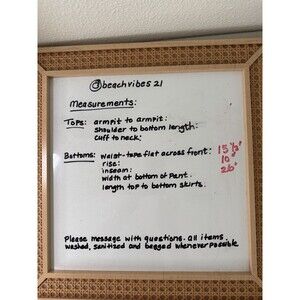 @beachvibes21
Measurements:
Tops: armpit to armpit:
shoulder to bottom length:
cuff to neck:
Bottoms: waist-tape flat across front: 15 ½"
rise: 10"
inseam: 26"
width at bottom of pant:
length top to bottom skirts.
Please message with questions. All items
washed, sanitized and bagged whenever possible